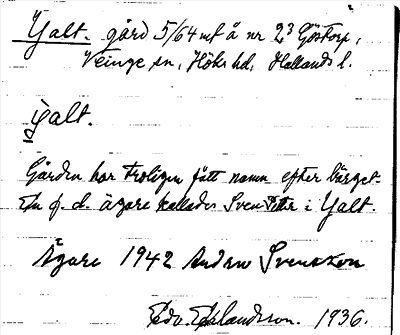 Yalt. gård 5/64 mt å nr 2³ Göstorp,
Veinge sn, Höks hd, Hallands l.
jalt.
Gården har troligen fått namn efter läget.
En f. d. ägare kallades Sven Petter i Yalt.
Ägare 1942 Andrew Svensson
Edv. 1936.